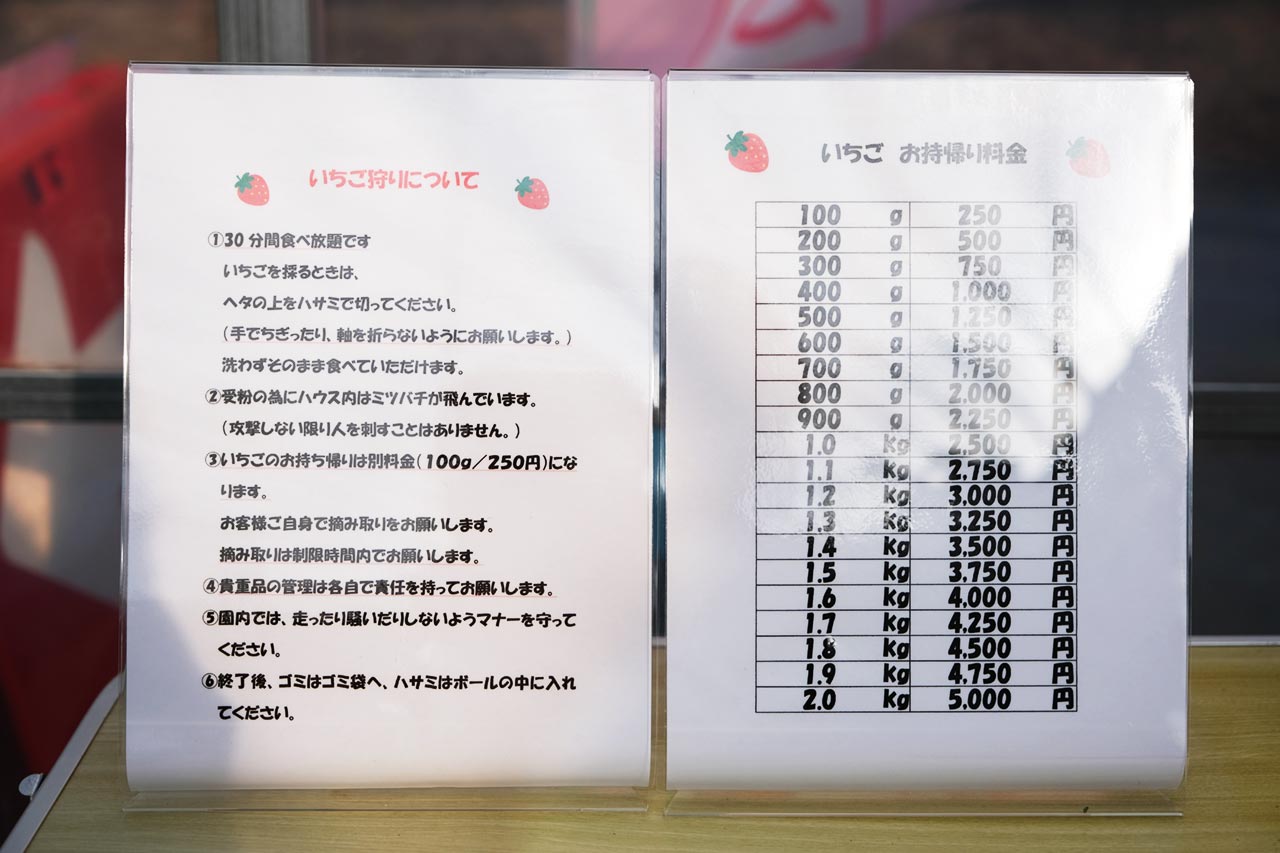 いちご狩りについて
①30分間食べ放題です
いちごを採るときは、
ヘタの上をハサミで切ってください。
(手でちぎったり、軸を折らないようにお願いします。)
洗わずそのまま食べていただけます。
②受粉の為にハウス内はミツバチが飛んでいます。
(攻撃しない限り人を刺すことはありません。)
③いちごのお持ち帰りは別料金(100g/250円)にな
ります。
お客様ご自身で摘み取りをお願いします。
摘み取りは制限時間内でお願いします。
④貴重品の管理は各自で責任を持ってお願いします。
⑤園内では、走ったり騒いだりしないようマナーを守って
ください。
⑥終了後、ゴミはゴミ袋へ、ハサミはボールの中に入れ
てください。
いちご お持帰り料金
100 g 250 円
200 g 500 円
300 g 750 円
400 g 1,000 円
500 g 1,250 円
600 g 1,500 円
700 g 1,750 円
800 g 2,000 円
900 g 2,250 円
1.0 kg 2,500 円
1.1 kg 2,750 円
1.2 kg 3,000 円
1.3 kg 3,250 円
1.4 kg 3,500 円
1.5 kg 3,750 円
1.6 kg 4,000 円
1.7 kg 4,250 円
1.8 kg 4,500 円
1.9 kg 4,750 円
2.0 kg 5,000 円